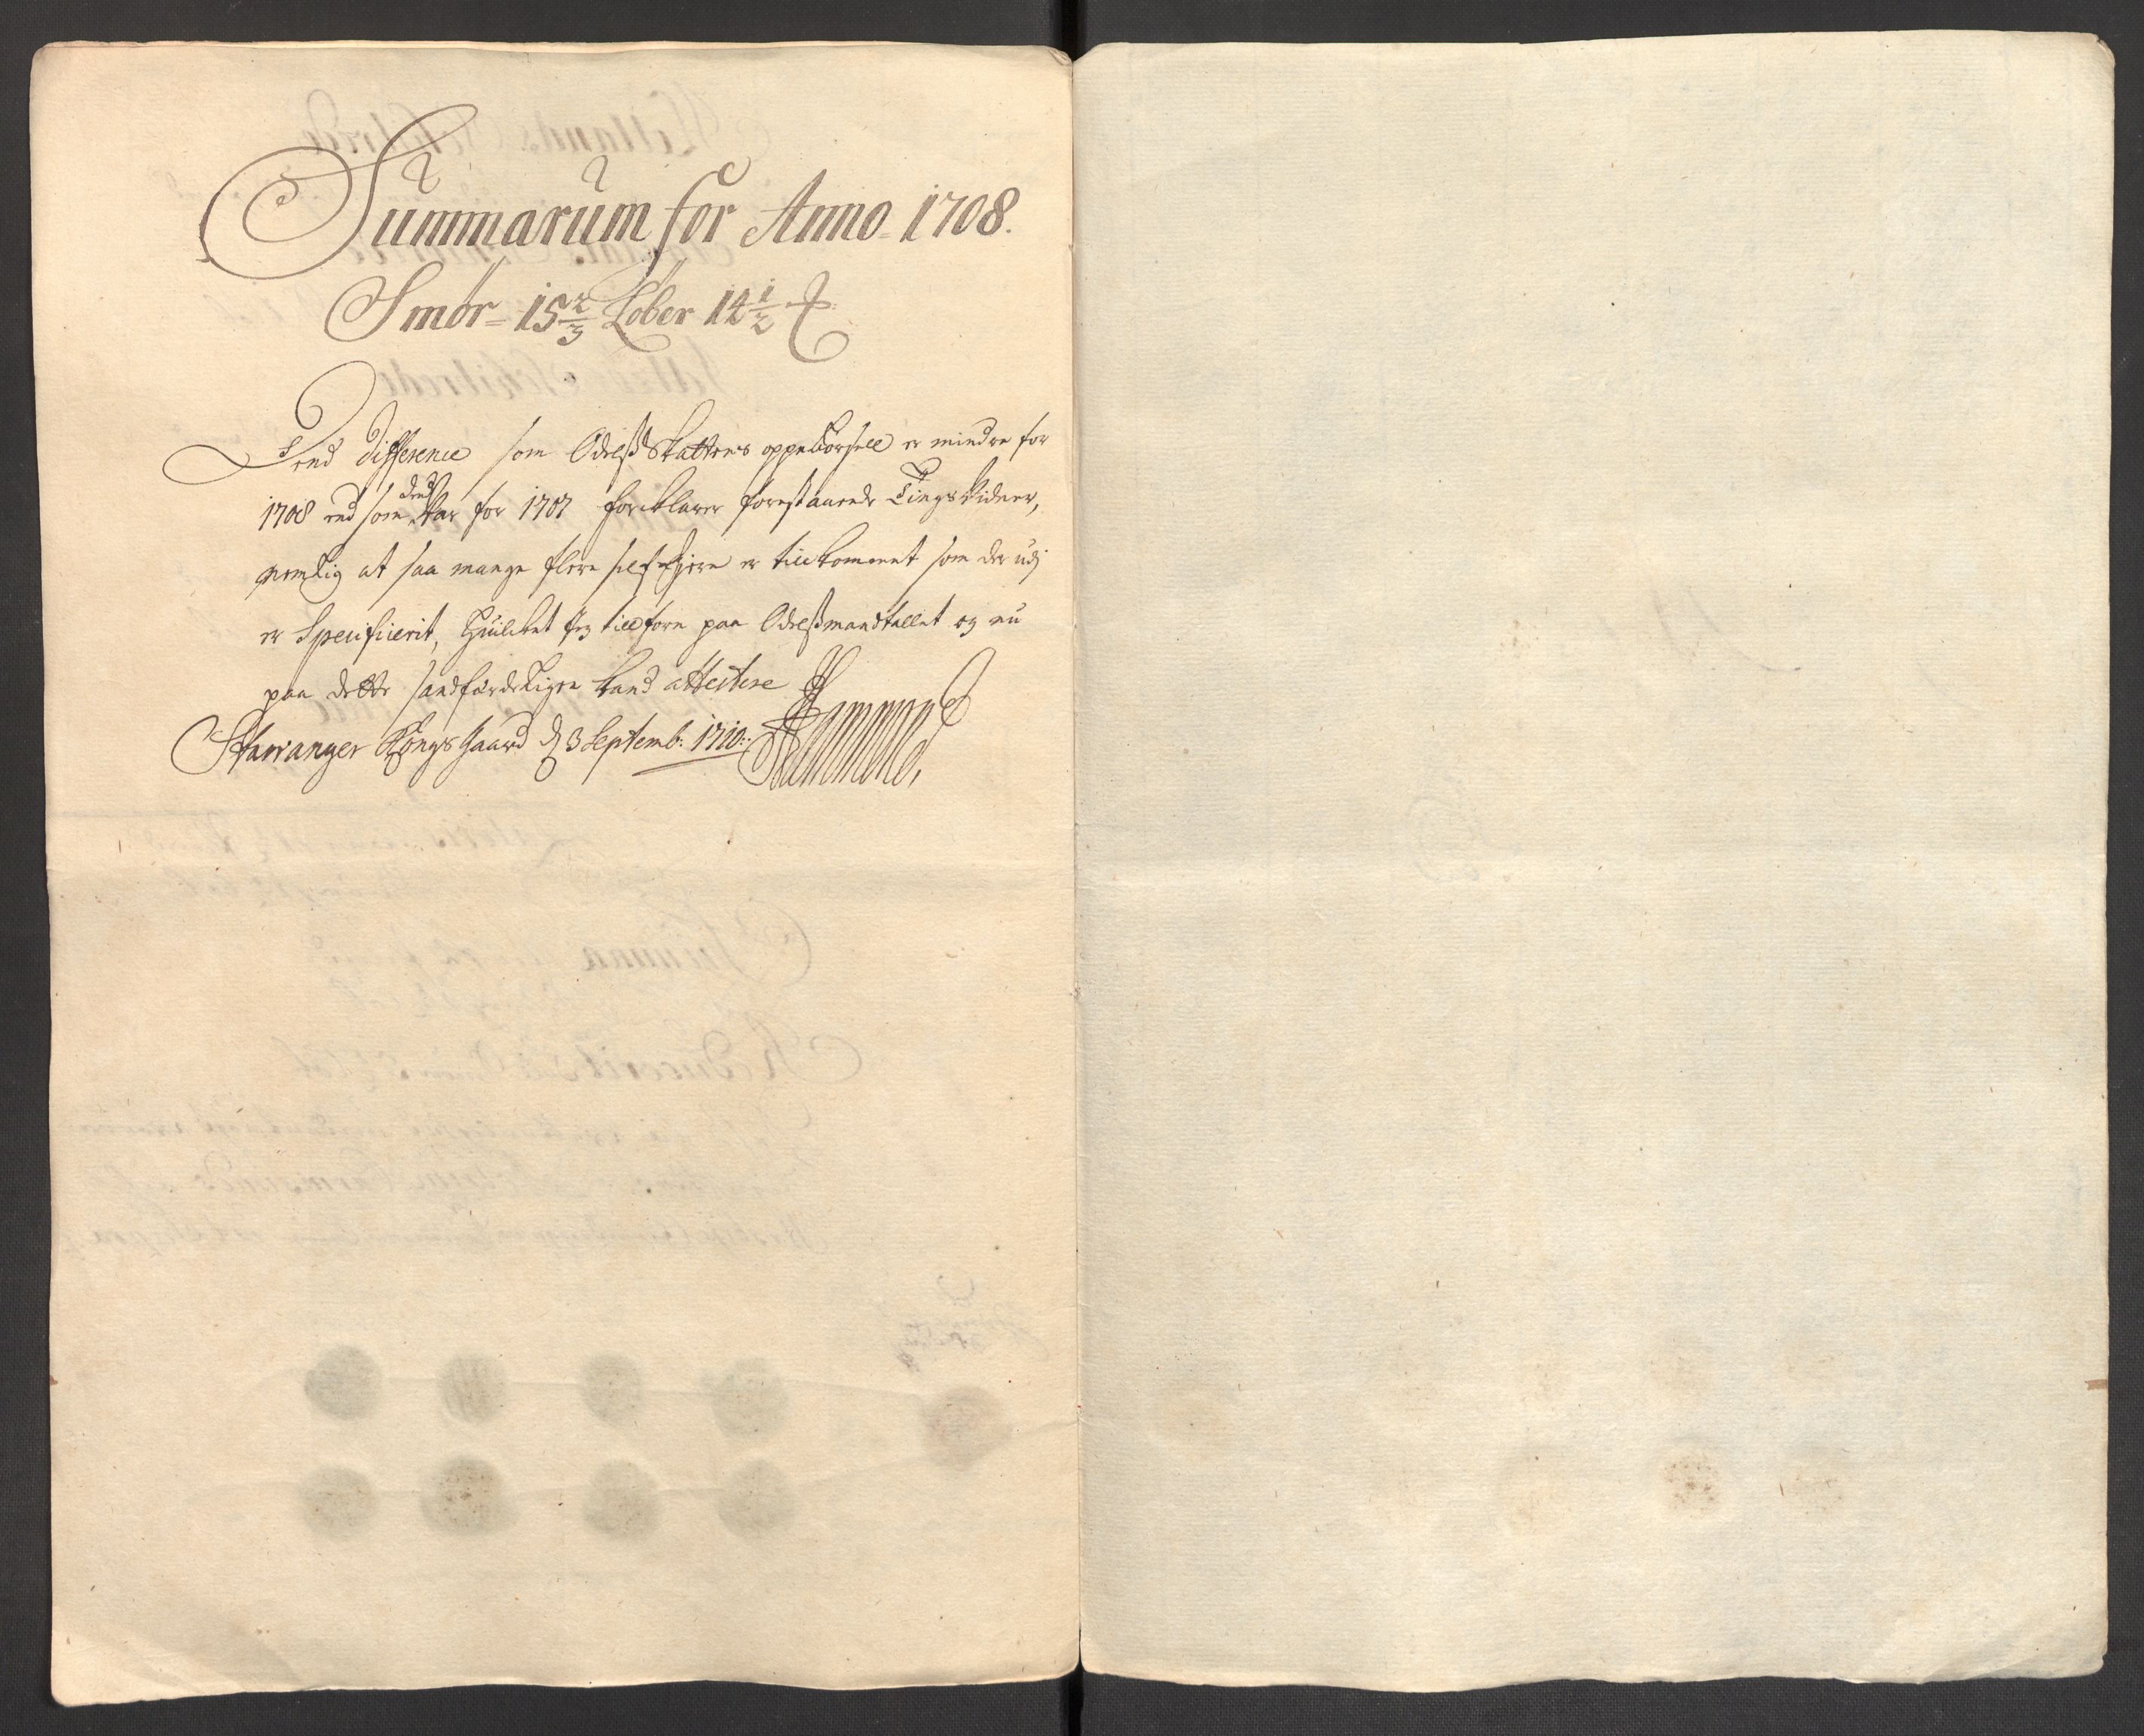 Summarum for Anno 1708.
Smör 15 2/3 Löber 14 1/2 ℔
Dend difference som Odelß Skattens oppebörsell er mindre for
1708 end som dend var for 1707 forklarer forestaaende Tings Vidner,
nemlig at saa mange flere self Ejere er tillkommet som der udj
er Specificerit, Huilcket Jeg tillforn paa Odelßmandtallet og nu
paa dette sandfærdeligen kand attestere
Stavanger Kongsgaard d 3 Septemb: 1710.
Hammond